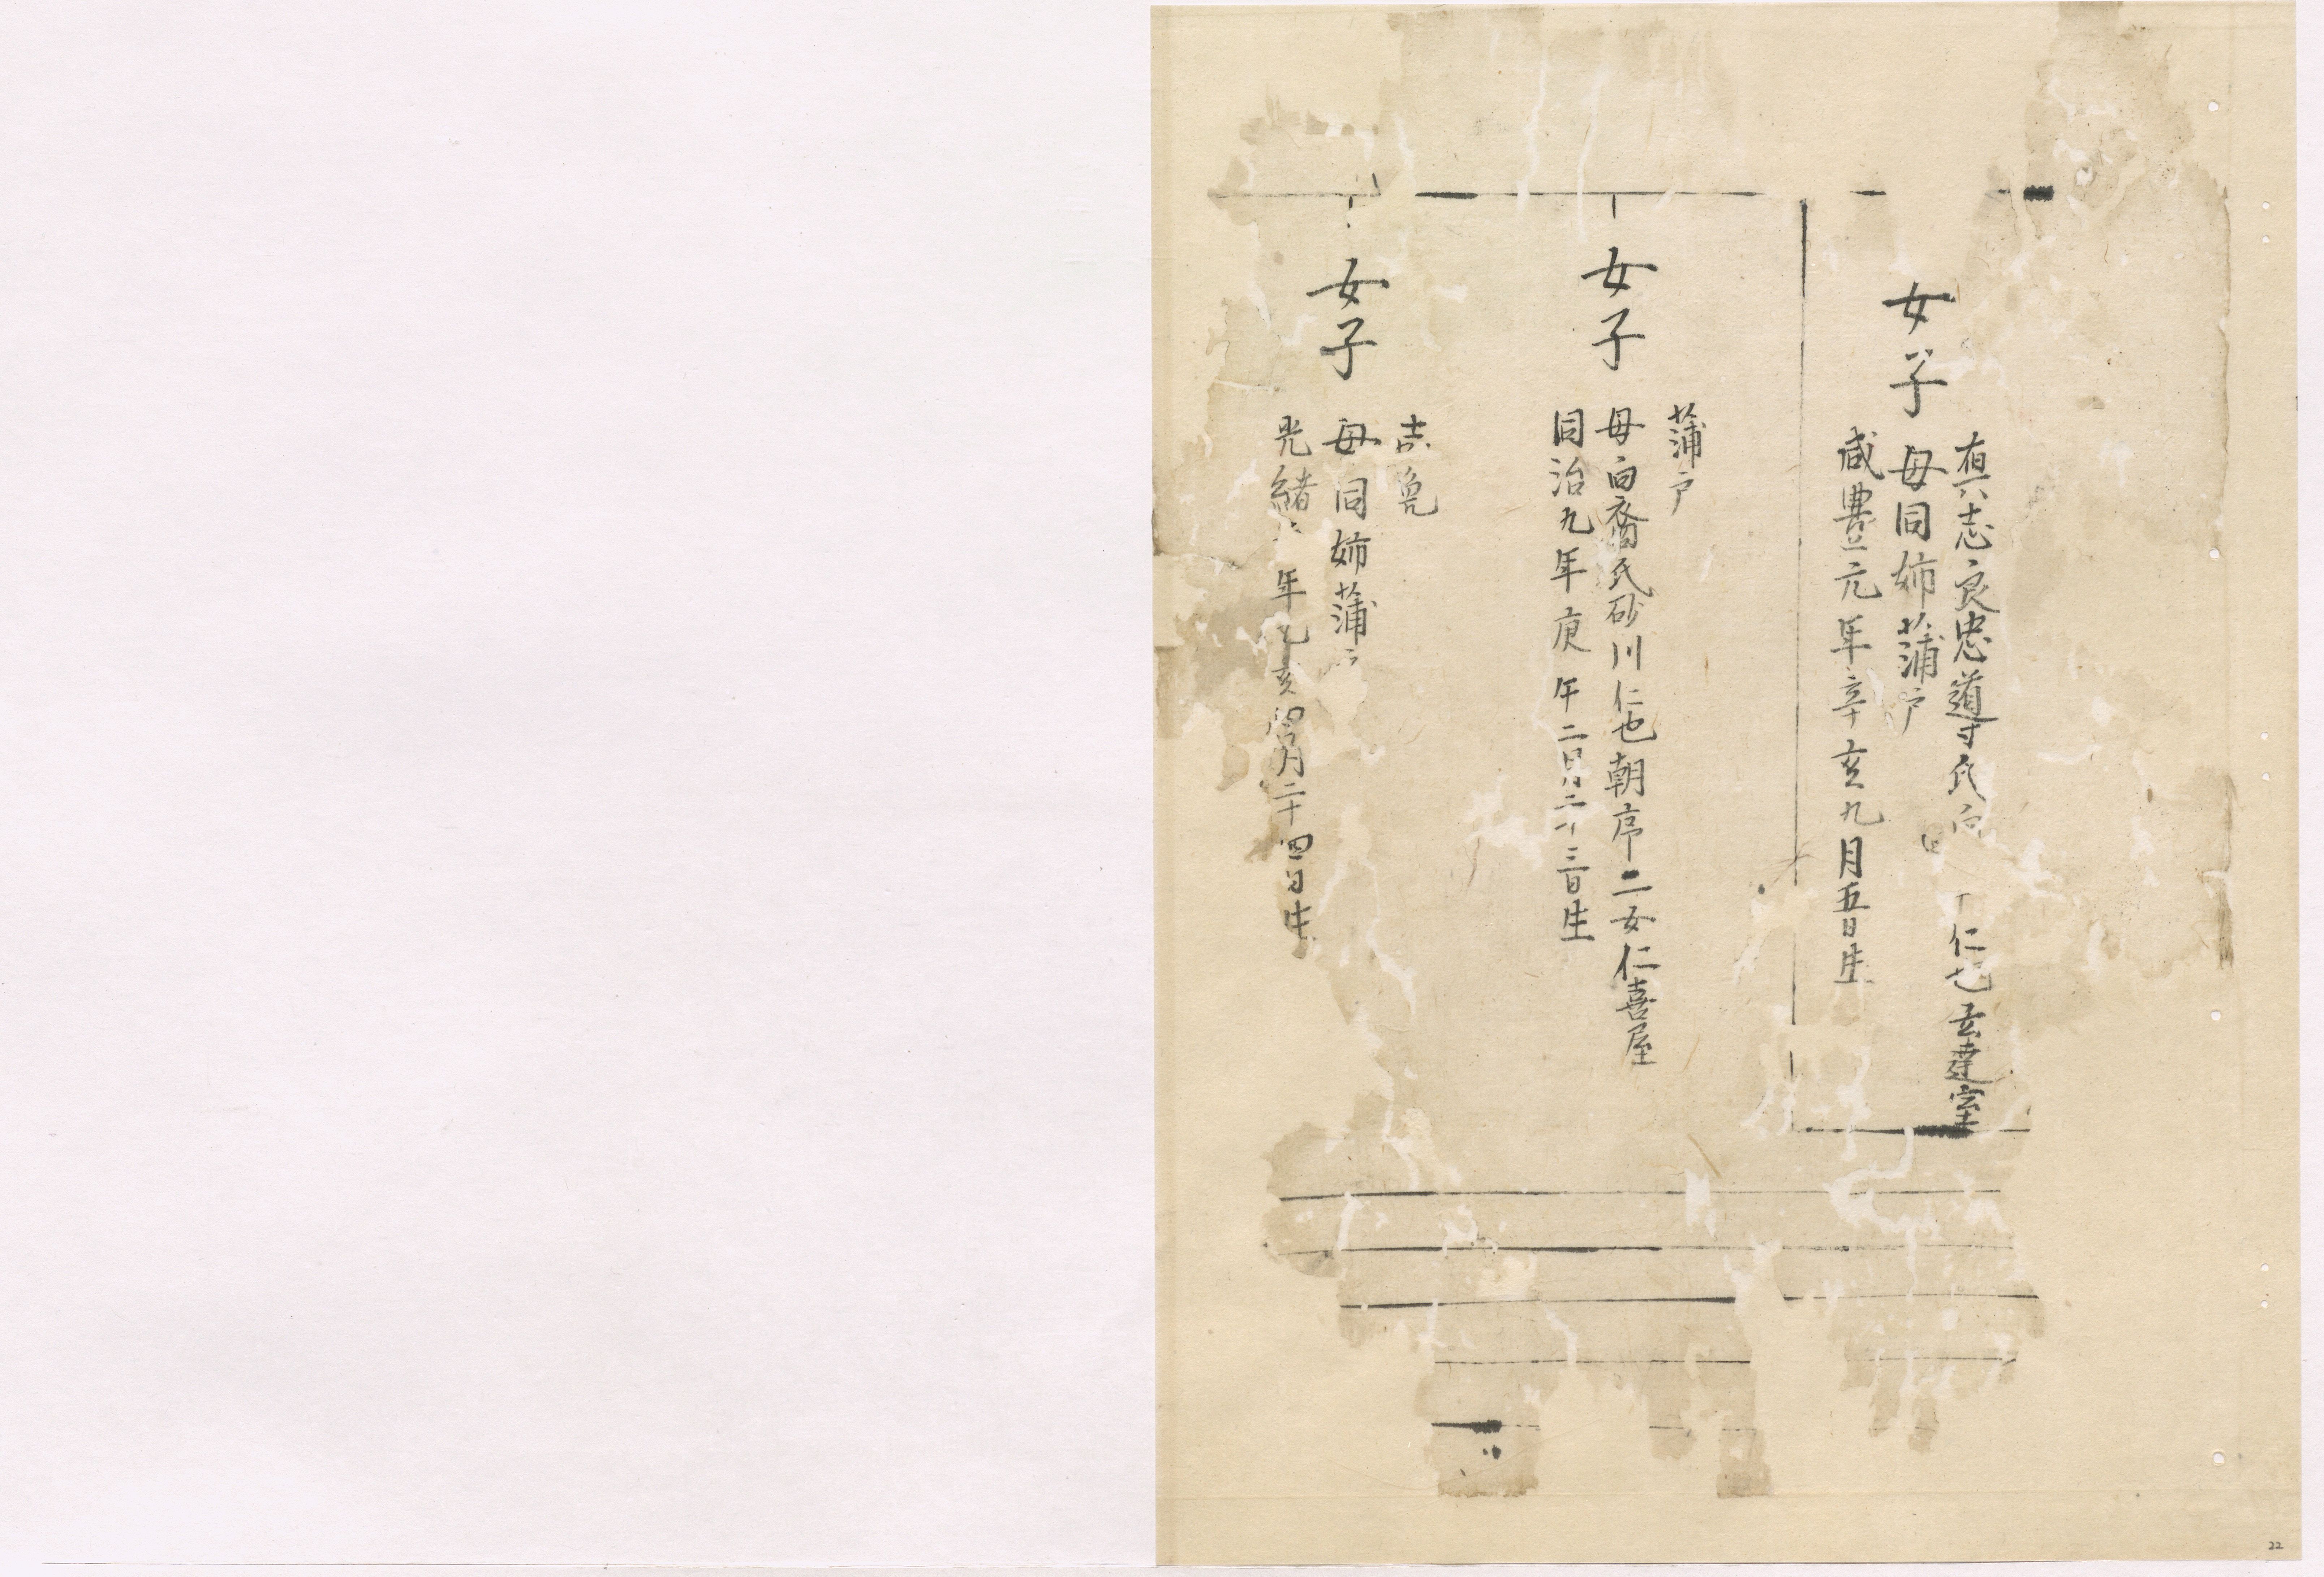 女子
真志良忠道寸氏向
仁也玄達室
母同姉蒲戸
咸豊元年辛亥九月五日生
女子
蒲戸
母向裔氏砂川仁也朝序二女仁喜屋
同治九年庚午二月二十三日生
女子
母同姉蒲
光緒
年乙亥四月二十四日生
22